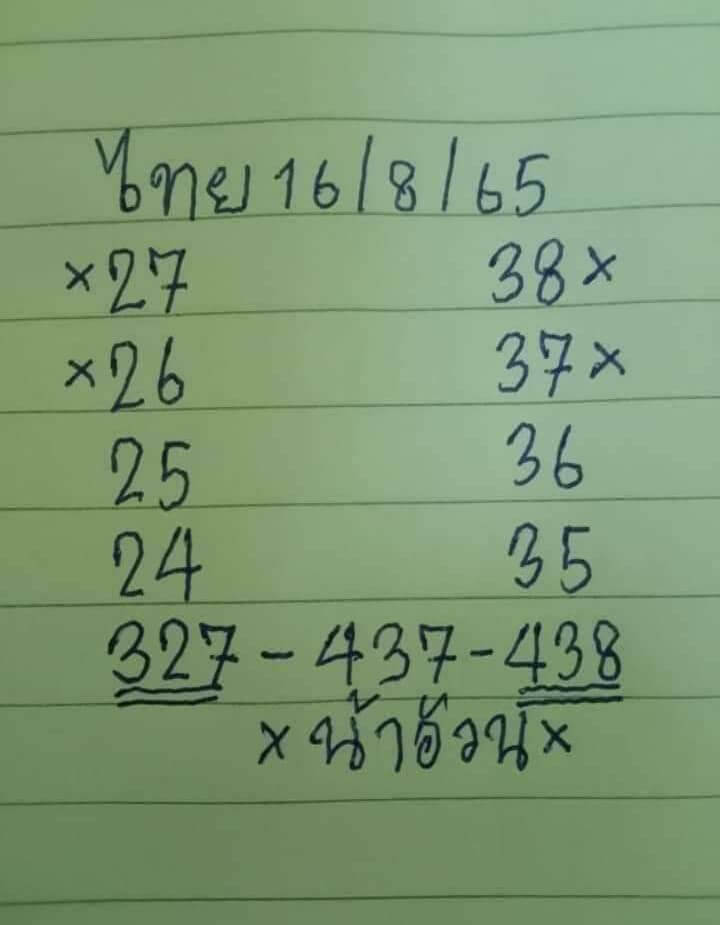 ไทย 16/8/65
×27 38×
×26 37×
25 36
24 35
327 - 437 - 438
× น้าอ้วน ×